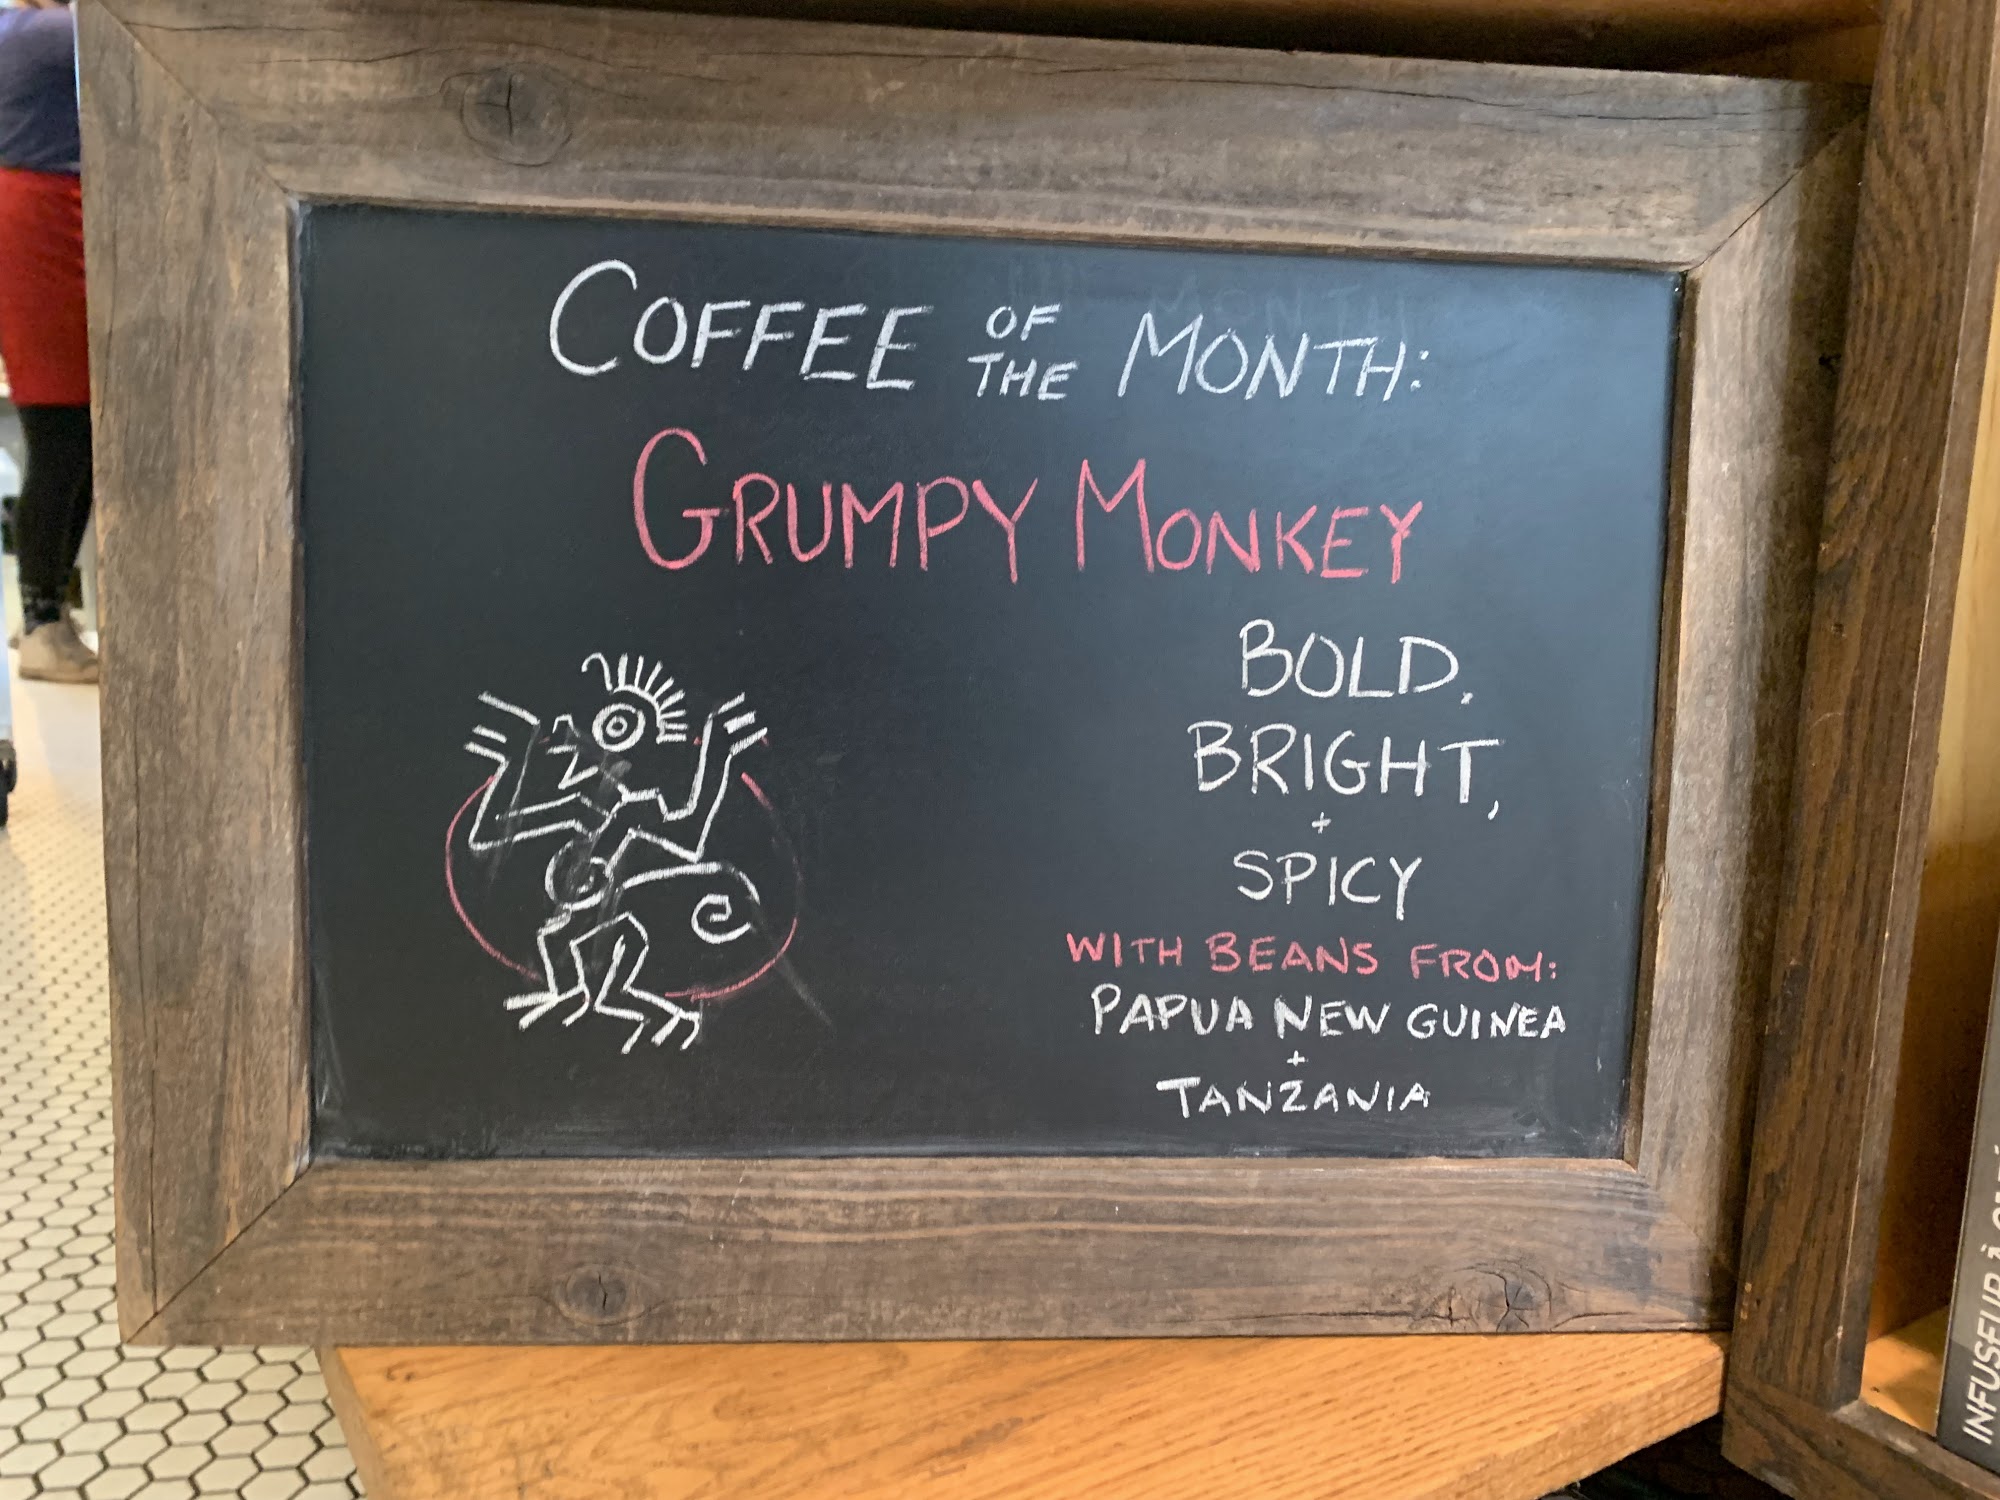 COFFEE OF THE MONTH:
GRUMPY MONKEY
BOLD,
BRIGHT,
+
SPICY
WITH BEANS FROM:
PAPUA NEW GUINEA
+
TANZANIA
INFUSEUR À CAFÉ